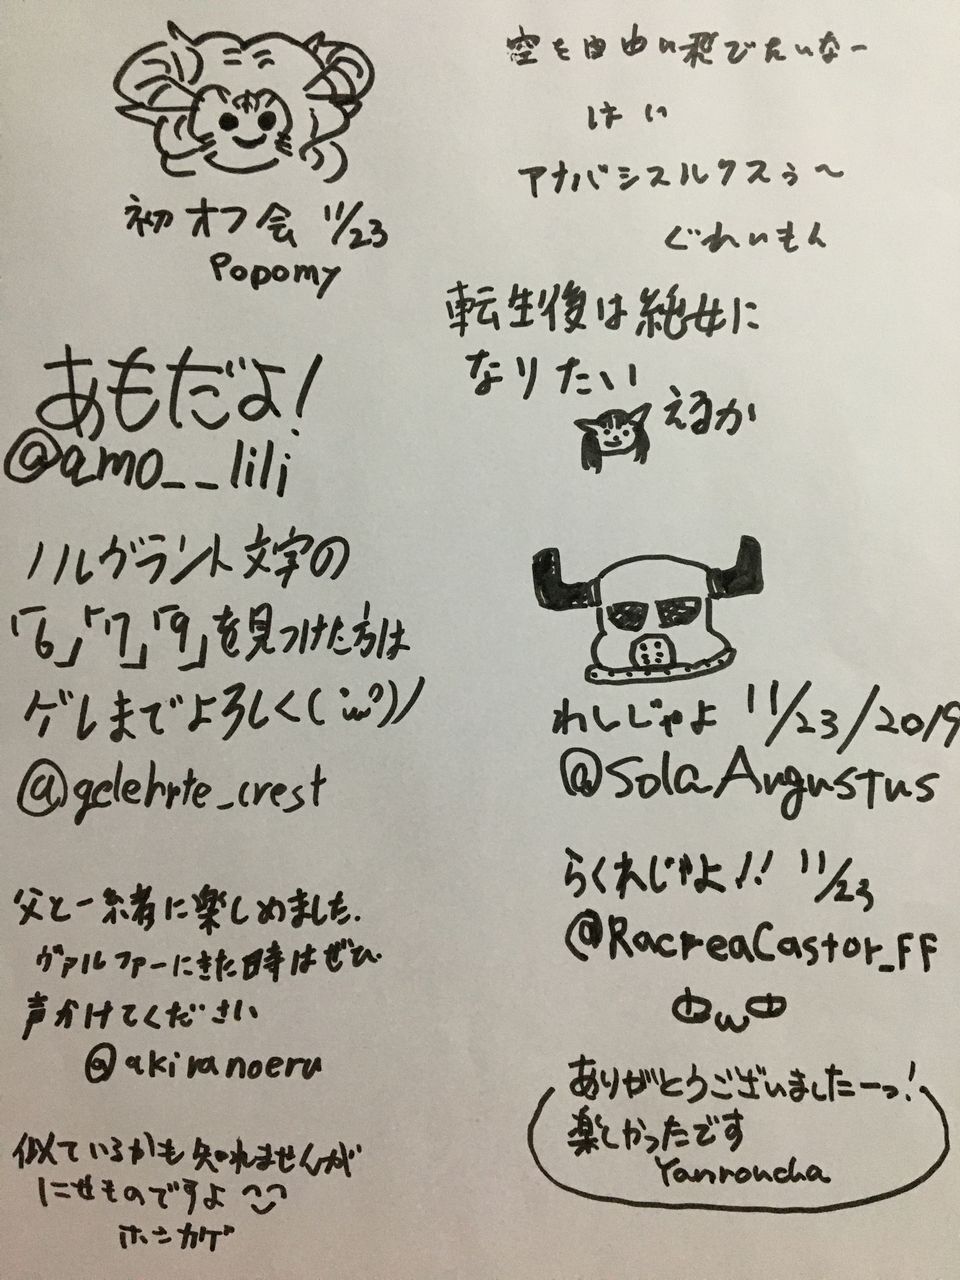 初オフ会 11/23
Popomy
あもだよ!
@amo__lili
ノルヴラント文字の
「6」「7」「9」を見つけた方は
ゲレまでよろしく(˙ω˙)ノ
@gelehrte_crest
父と一緒に楽しめました.
ヴァルファーにきた時はぜひ
声かけてください
@akiranoeru
似ているかも知れませんが
にせものですよ
ホシカゲ
空も自由に飛びたいなー
はい
アナバシスルクスぅ〜
ぐれいもん
転生後は純女に
なりたい
えるか
わしじゃよ 11/23/2019
@SolaAugustus
らくれじゃよ!! 11/23
@RacreaCastor_FF
ありがとうございましたーっ!
楽しかったです
Yanroncha